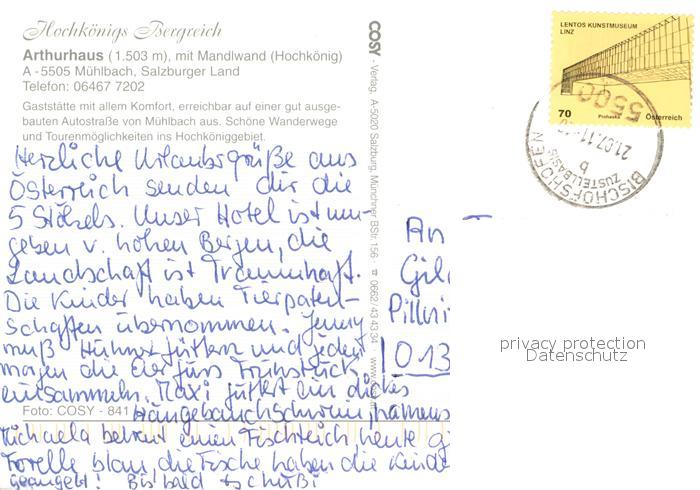 Hochkönigs Bergreich
Arthurhaus (1.503 m), mit Mandlwand (Hochkönig)
A - 5505 Mühlbach, Salzburger Land
Telefon: 06467 7202
Gaststätte mit allem Komfort, erreichbar auf einer gut ausge-
bauten Autostraße von Mühlbach aus. Schöne Wanderwege
und Tourenmöglichkeiten ins Hochköniggebiet.
Herzliche Urlaubsgrüße aus
Österreich senden dir die
5 Stölzels. Unser Hotel ist um-
geben v. hohen Bergen, die
Landschaft ist Traumhaft.
Die Kinder haben Tierpaten-
schaften übernommen. Jenny
muß Hühner füttern und jeden
morgen die Eier fürs Frühstück
einsammeln. Maxi füttert ein dickes
Foto: COSY - 841
Hängebauchschwein,
Michaela betreut einen Fischteich heute g
Forelle blau, die Fische haben die Kinde
geangelt! Bis bald tschüßi
COSY - Verlag, A-5020 Salzburg, Münchner BStr. 156 ☎ 0662/43 43 34
LENTOS KUNSTMUSEUM
LINZ
70
Prohaska
Österreich
5500
21.07.11
b
ZUSTELLBASIS
BISCHOFSHOFEN
An
Gil
Pillni
013
privacy protection
Datenschutz